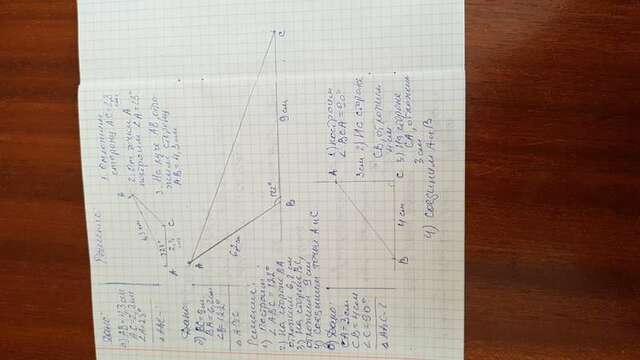 Дано:
Решение
а) AB = 4,3 см
AC = 2,3 см
∠A = 23°
△ABC - ?
B
4,3 см
23°
A
2,3
см
C
1. Отложим
сторону AC = 2,3
см
2. От точки A
построим ∠A = 23°
3. На луче AB, отло-
жим сторону
AB = 4,3 см
Дано:
б) BC = 9 см
BA = 6,2 см
∠B = 122°
△ABC
A
6,2 см
122°
B
9 см
C
Решение:
1) Построим
∠ABC = 122°
2) На стороне BA
отложим 6,2 см
3) На стороне BC,
отложим 9 см
4) Соединим точки A и C
в) Дано:
CA = 3 см
CB = 4 см
∠C = 90°
△ABC - ?
A
3 см
B
4 см
C
1) построим
∠BCA = 90°
2) На стороне
CB, отложим
4 см
3) На стороне
CA, отложим
3 см
4) Соединим A и B